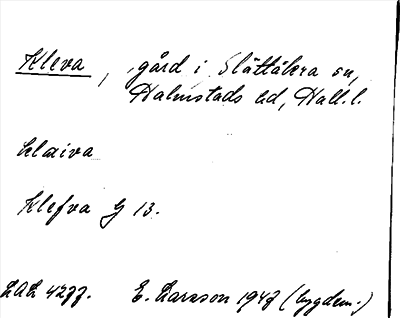 Kleva, gård i Slättåkra sn,
Halmstads hd, Hall.l.
klaiva
Klefva G 13.
LAL 4277. E. Larsson 1947 (bygdem.)